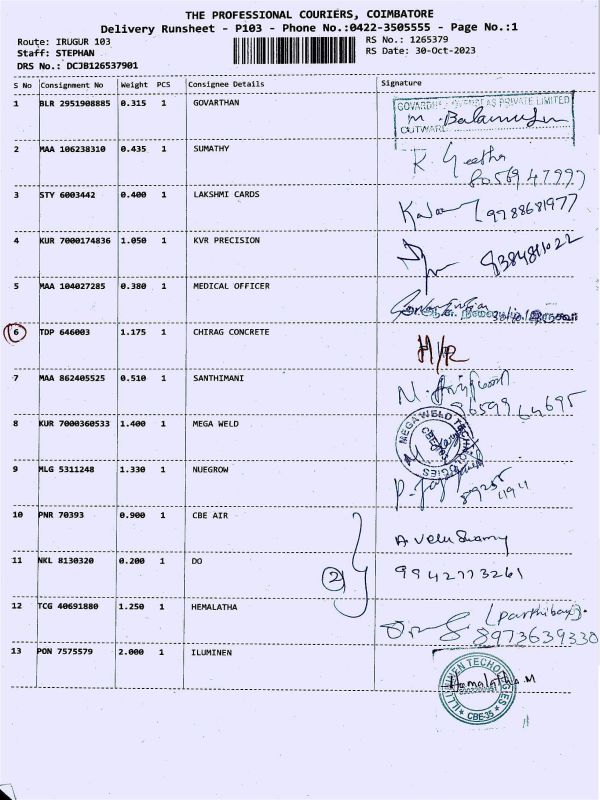 THE PROFESSIONAL COURIERS, COIMBATORE
Delivery Runsheet - P103 - Phone No.:0422-3505555 - Page No.:1
Route: IRUGUR 103
RS No.: 1265379
Staff: STEPHAN
RS Date: 30-Oct-2023
DRS No.: DCJB126537901
S No Consignment No Weight PCS Consignee Details Signature
1 BLR 2951908885 0.315 1 GOVARTHAN
GOVARDHAN OVERSEAS PRIVATE LIMITED
OUTWARD
2 MAA 106238310 0.435 1 SUMATHY
R. Geetha
3 STY 6003442 0.400 1 LAKSHMI CARDS
9788681977
4 KUR 7000174836 1.050 1 KVR PRECISION
9384811022
5 MAA 104027285 0.380 1 MEDICAL OFFICER
6 TDP 646003 1.175 1 CHIRAG CONCRETE
H/R
7 MAA 862405525 0.510 1 SANTHIMANI
8659964695
8 KUR 7000360533 1.400 1 MEGA WELD
MEGAWELD TECHNOLOGIES
9 MLG 5311248 1.330 1 NUEGROW
10 PNR 70393 0.900 1 CBE AIR
A Velu Swamy
11 NKL 8130320 0.200 1 DO
2
9942773261
12 TCG 40691880 1.250 1 HEMALATHA
(parthiban)
8973639330
13 PON 7575579 2.000 1 ILUMINEN
Hemalatha.M
CBE-35